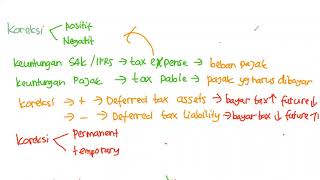 Koreksi
Positif
Negatif
Keuntungan SAK/IFRS → tax expense → beban pajak
Keuntungan Pajak → tax pable → pajak yg harus dibayar
Koreksi → + → Deferred tax assets → bayar tax ↑ future ↓
→ - → Deferred tax Liability → bayar tax ↓ future ↑
Koreksi
Permanent
temporary